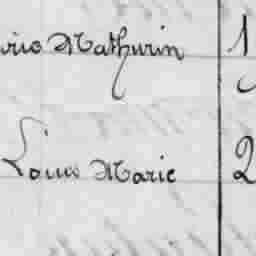 Mathurin 1
Louis Marie 2